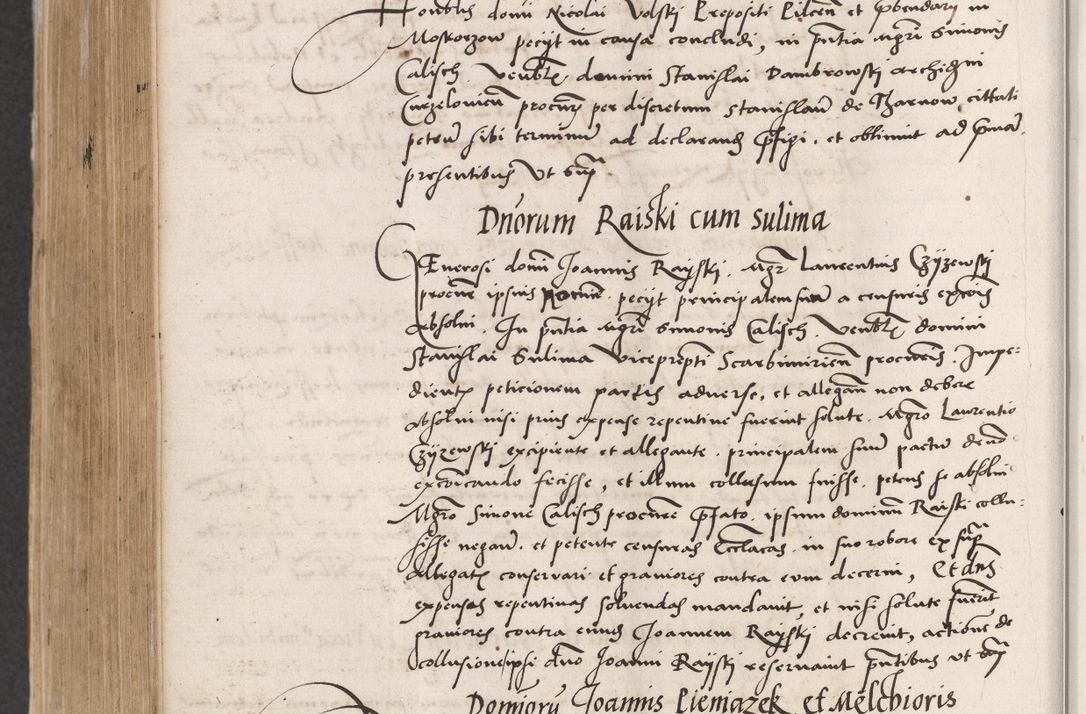 Honblis domini Nicolai Volski Prepositi Pilcen et prbendarii in
Moskorzow pecijt in causa concludi, in pntia Mgri Simonis
Calisch. Venblis domini Stanislai Dambrowski archidni
Curzelovien procuris per discretum Stanislau de Tharnow cittati
petiit sibi terminu ad declarand prfigi. et obtinuit ad primam
presentibus Ut supra
Dnorum Raiski cum sulima
Generosi domini Joannis Rayski. Mgr Laurentius Czyzewski
procur ipsius pecijt principalem suu a censuris excois
absolvi. In pntia Mgri Simonis Calisch. Venblis domini
Stanislai Sulima viceprepti Scarbimirien procuris. Impe-
dientis peticionem partis adverse, et allegan non debere
absolvi nisi prius expense repentine fuerint solute. Mgro Laurentio
Czyzewski excipiente et allegante. principalem suu pactu
excoicando fecisse, et illum collusum fuisse. petens se absolvi
Mgro Simone Calisch procure prfato. ipsum dominum Raiski collu-
sisse negan. et petente censuras Ecclicas in suo robore ex supra
allegatis conservari et graviores contra eum decerni, Et dns
expensas repentinas solvendas mandavit, et nisi solute fuerit
graviores contra eundem Joannem Rayski decrevit, actione de
collusione ipsi dno Joanni Rayski reservavit pntibus ut supra
Dominoru Joannis Pieniazek et Melchioris